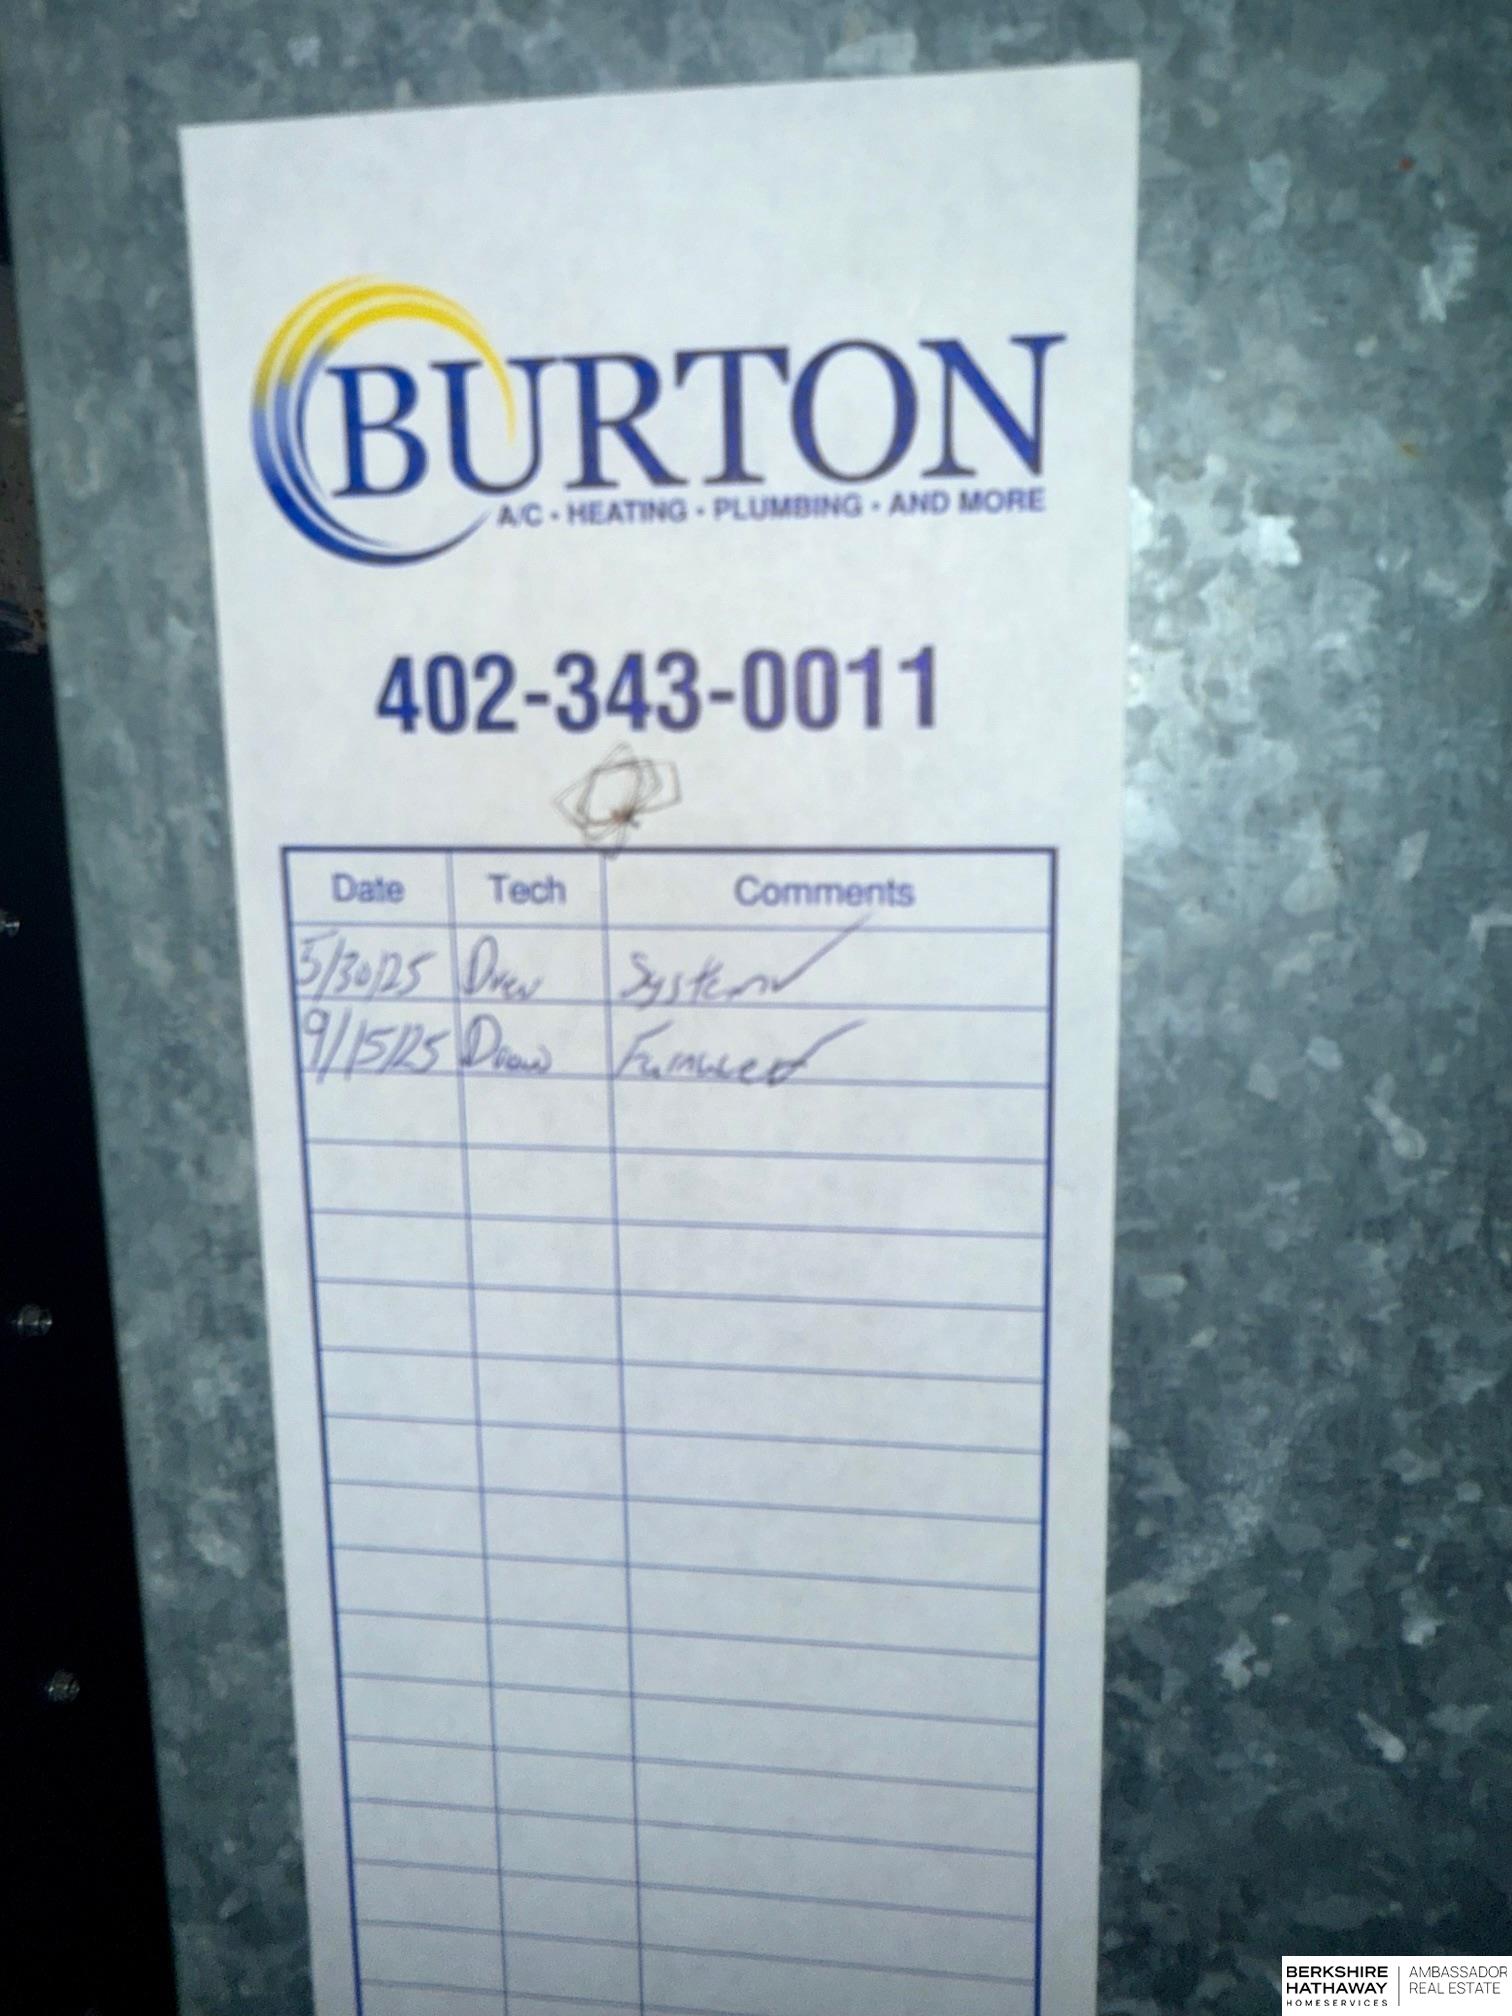 BURTON
A/C • HEATING • PLUMBING • AND MORE
402-343-0011
Date Tech Comments
5/30/25 Drew System ✓
9/15/25 Drew Furnace ✓
BERKSHIRE HATHAWAY HOMESERVICES
AMBASSADOR REAL ESTATE